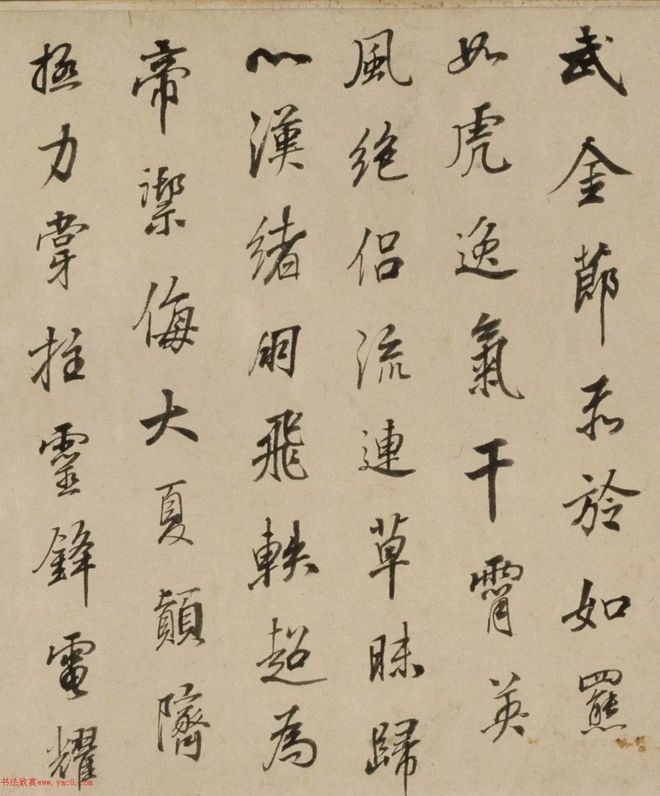 武金節朱於如羆
如虎逸氣干霄英
風絶侣流連草昧歸
心漢緒用飛軼超為
帝禦侮大夏顛隮
極力掌拄靈鋒電耀
书法欣赏www.yac8.com